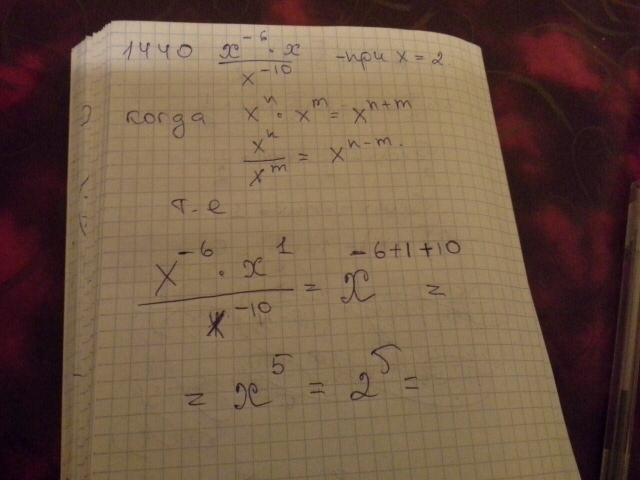 1440 x⁻⁶ · x / x⁻¹⁰ - при x = 2.
когда xⁿ · xᵐ = xⁿ⁺ᵐ
xⁿ / xᵐ = xⁿ⁻ᵐ.
т.е
x⁻⁶ · x¹ / x⁻¹⁰ = x⁻⁶⁺¹⁺¹⁰ =
= x⁵ = 2⁵ =